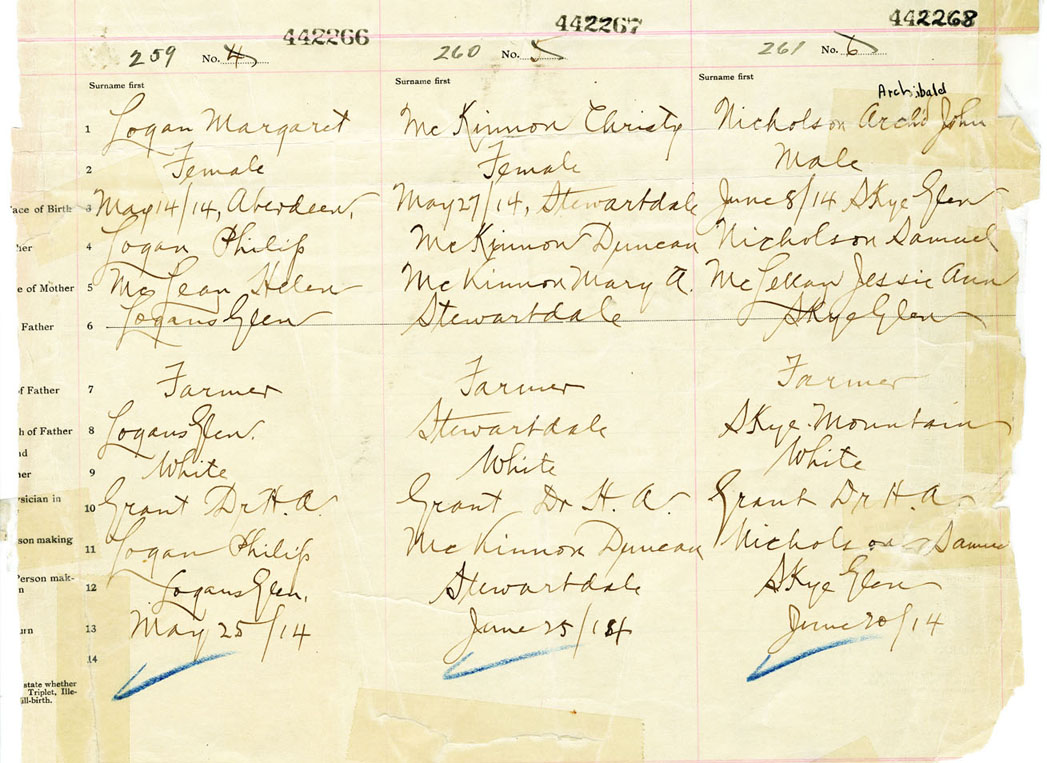 442266 442267 442268
259 No. 4 260 No. 5 261 No. 6
Surname first Surname first Surname first
Archibald
1 Logan Margaret McKinnon Christy Nicholson Archd John
2 Female Female Male
ace of Birth 3 May 14/14, Aberdeen, May 27/14, Stewartdale June 8/14 Skye Glen
her 4 Logan Philip McKinnon Duncan Nicholson Samuel
e of Mother 5 McLean Helen McKinnon Mary A. McLellan Jessie Ann
Father 6 Logans Glen Stewartdale Skye Glen
f Father 7 Farmer Farmer Farmer
h of Father 8 Logans Glen. Stewartdale Skye Mountain
nd
her 9 White White White
ysician in 10 Grant Dr H. A. Grant Dr H. A. Grant Dr H. A.
son making 11 Logan Philip McKinnon Duncan Nicholson Samuel
Person mak-
n 12 Logans Glen, Stewartdale Skye Glen
urn 13 May 25/14 June 25/14 June 20/14
14
state whether
Triplet, Ille-
ill-birth.